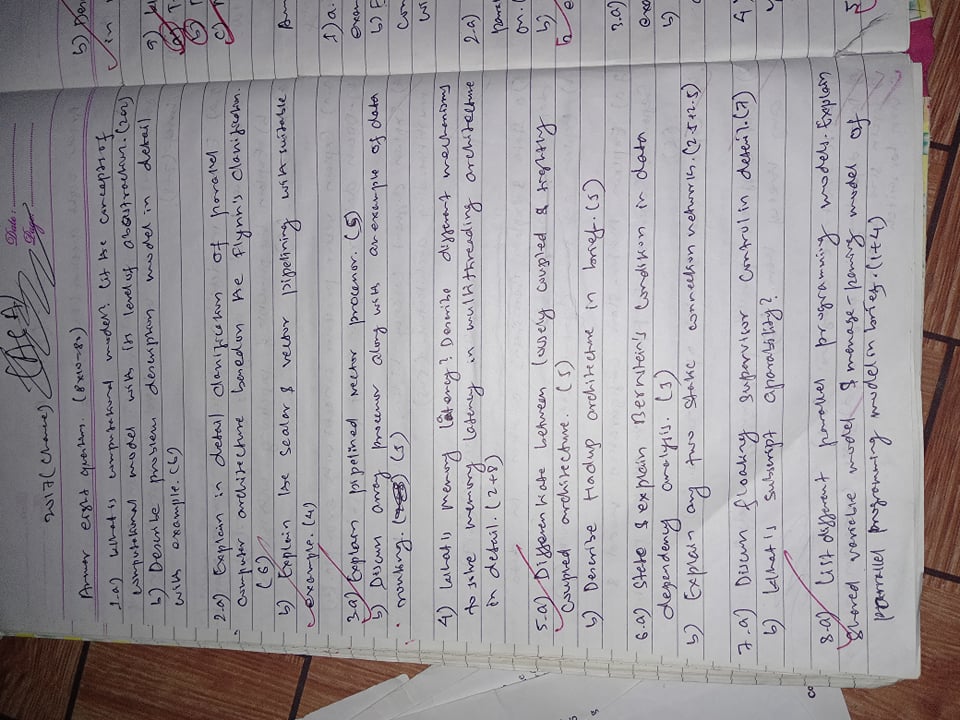 (ACA)
Date :
Page:
2017 (Chance)
Answer eight questions. (8x10=80)
1.a) What is computational model? List the concepts of
computational model with its level of abstraction. (2+2)
b) Describe problem description model in detail
with example. (6)
2.a) Explain in detail classification of parallel
computer architecture based on the Flynn's classification.
(6)
b) Explain the scalar & vector pipelining with suitable
example. (4)
3.a) Explain pipelined vector processor. (5)
b) Discuss array processor along with an example of data
routing. (5)
4) What is memory latency? Describe different mechanisms
to solve memory latency in multithreading architecture
in detail. (2+8)
5.a) Differentiate between loosely coupled & tightly
coupled architecture. (5)
b) Describe Hadup architecture in brief. (5)
6.a) State & explain Bernstein's Condition in data
dependency analysis. (5)
b) Explain any two static connection networks. (2.5+2.5)
7.a) Discuss floating supervisor control in detail. (7)
b) What is subscript aparability?
8.a) List different parallel programming models. Explain
shared variable model & message-passing model of
parrallel programming model in brief. (1+4)
b) Des
in
a)
a) T
b)
c)
1) a.
exa
b) E
con
wi
2.a)
para
on.
b)
e
3.a)
exa
b)
4
5